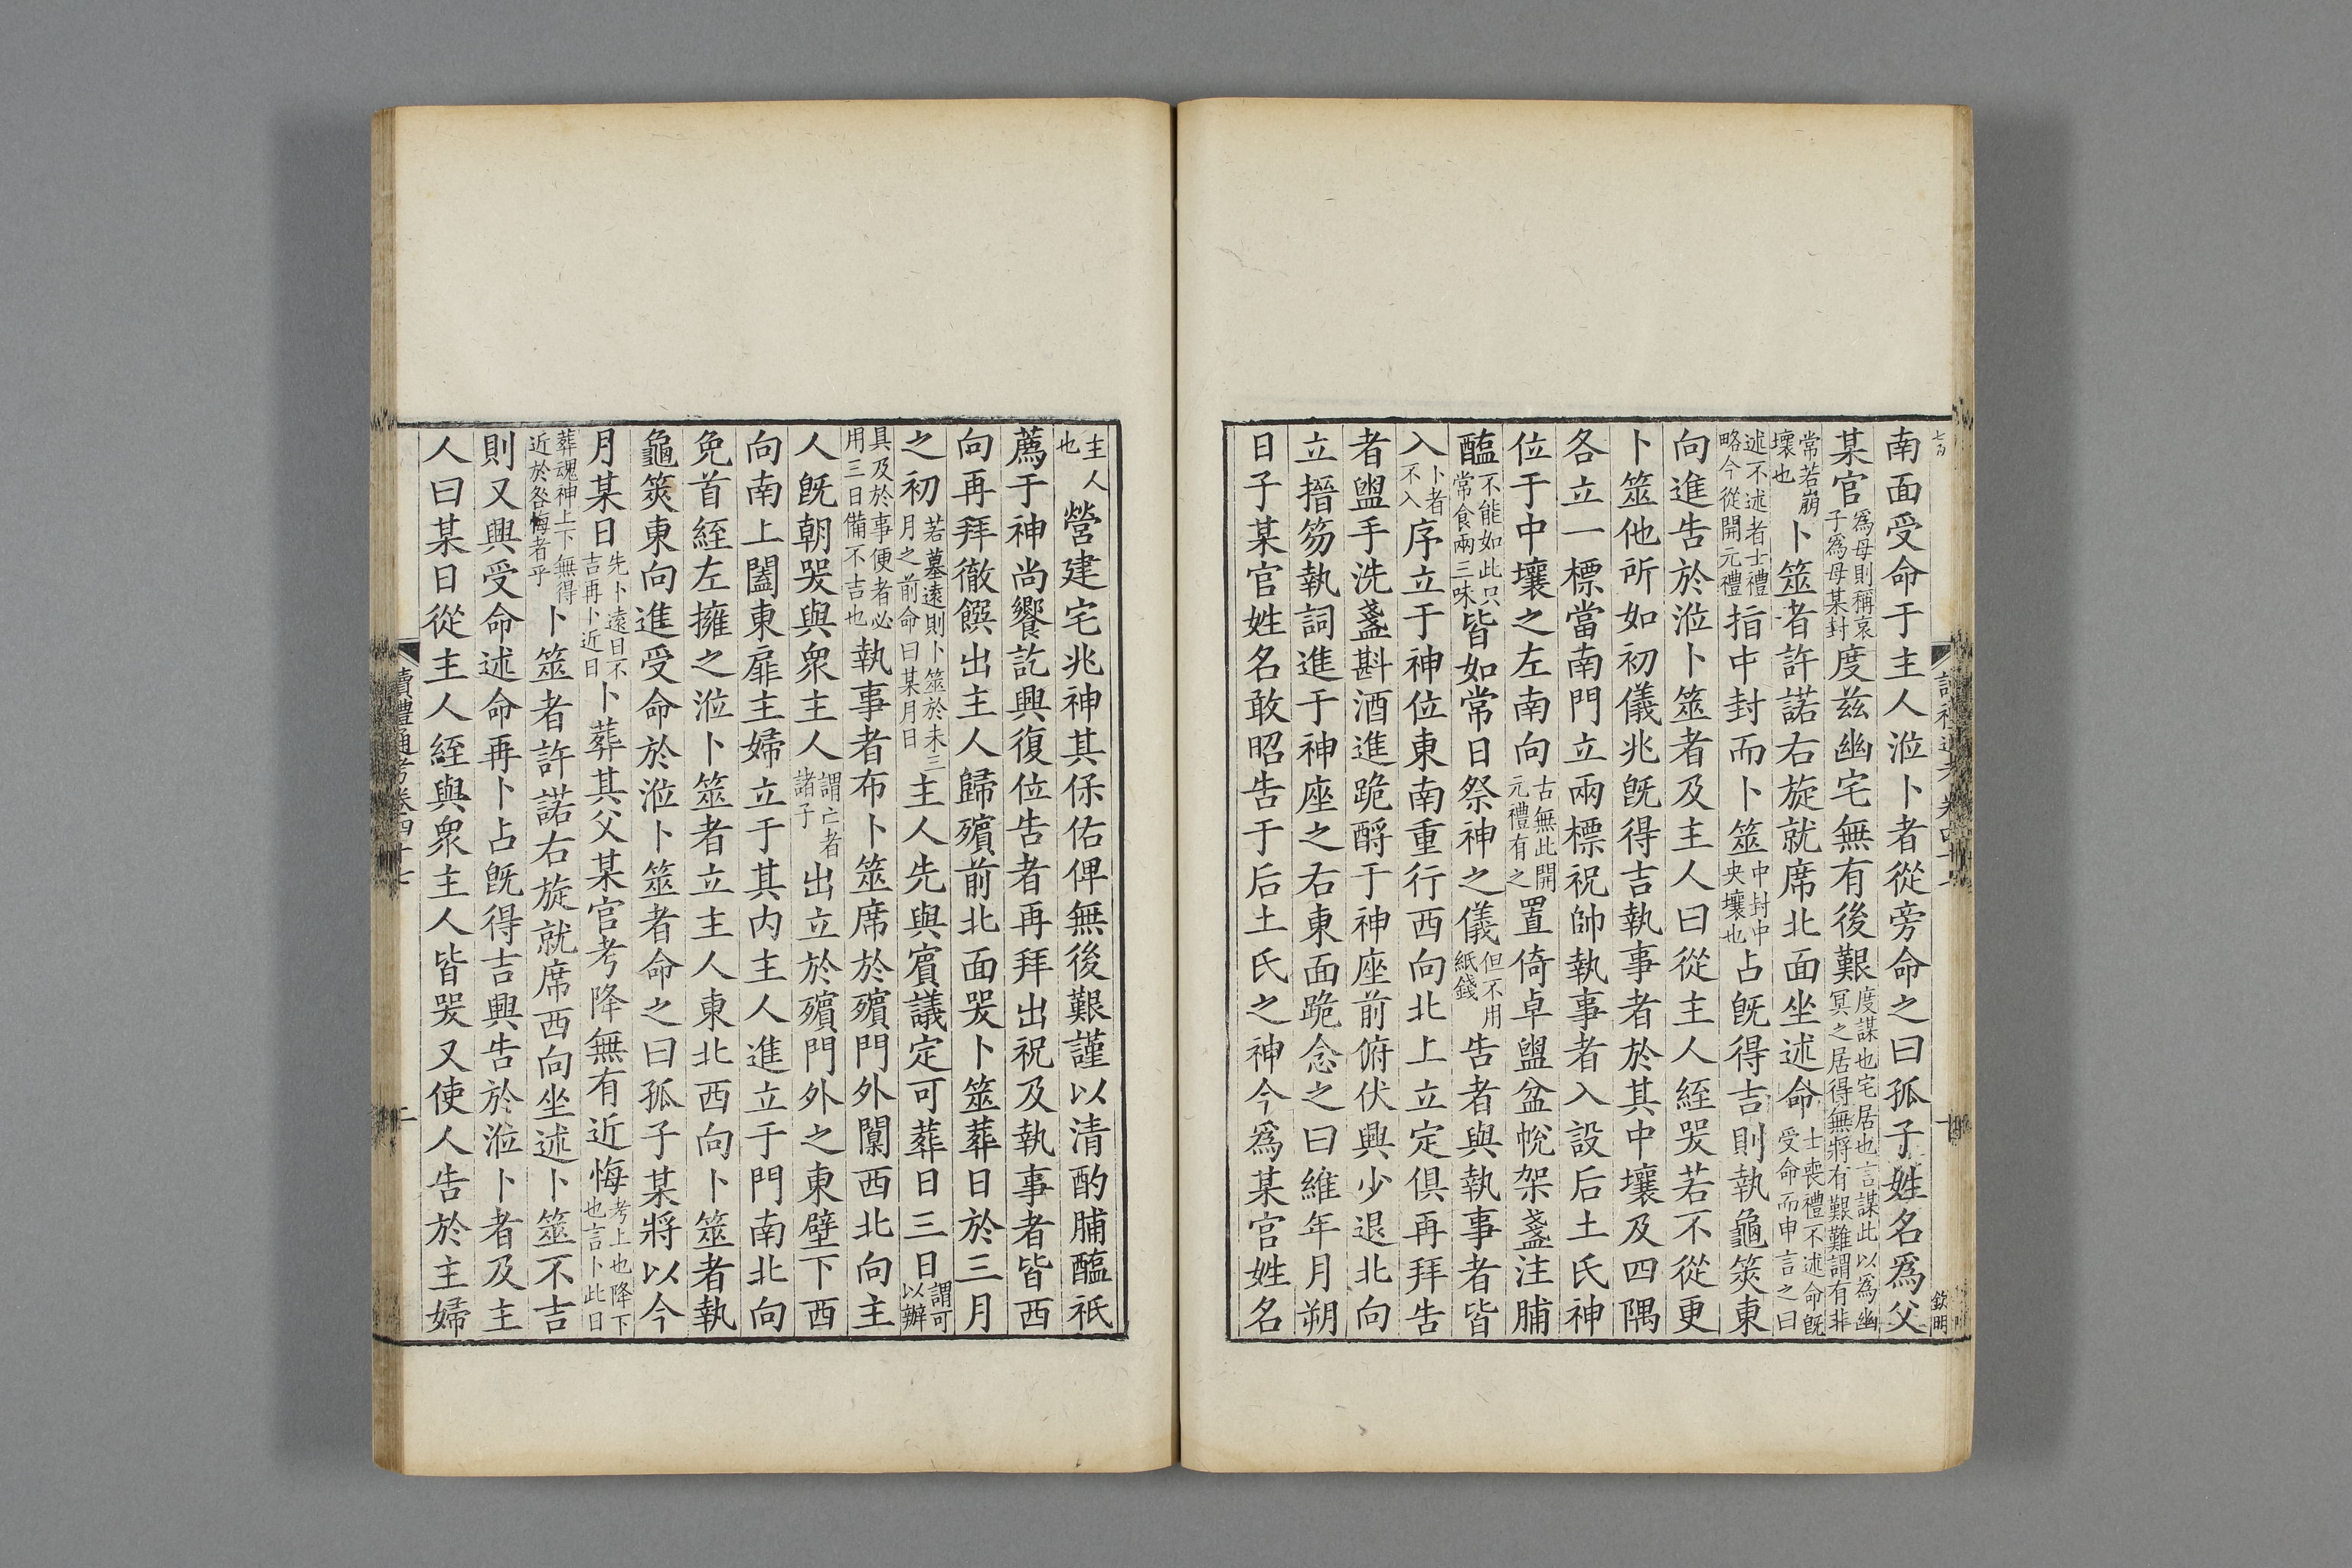 南面受命于主人涖卜者從旁命之曰孤子姓名爲父
某官爲母則稱哀子爲母某封度茲幽宅無有後艱度謀也宅居也言謀此以爲幽冥之居得無將有艱難謂有非
常若崩壞也卜筮者許諾右旋就席北面坐述命士喪禮不述命旣受命而申言之曰
述不述者士禮略今從開元禮指中封而卜筮中封中央壤也占旣得吉則執龜筴東
向進告於涖卜筮者及主人曰從主人絰哭若不從更
卜筮他所如初儀兆旣得吉執事者於其中壤及四隅
各立一標當南門立兩標祝帥執事者入設后土氏神
位于中壤之左南向古無此開元禮有之置倚卓盥盆帨架盞注脯
醢不能如此只常食兩三味皆如常日祭神之儀但不用紙錢告者與執事者皆
入卜者不入序立于神位東南重行西向北上立定俱再拜告
者盥手洗盞斟酒進跪酹于神座前俯伏興少退北向
立搢笏執詞進于神座之右東面跪念之曰維年月朔
日子某官姓名敢昭告于后土氏之神今爲某官姓名
主人也營建宅兆神其保佑俾無後艱謹以清酌脯醢祇
薦于神尚饗訖興復位告者再拜出祝及執事者皆西
向再拜徹饌出主人歸殯前北面哭卜筮葬日於三月
之初若墓遠則卜筮於未三月之前命曰某月日主人先與賓議定可葬日三日謂可以辦
具及於事便者必用三日備不吉也執事者布卜筮席於殯門外闑西北向主
人旣朝哭與衆主人謂亡者諸子出立於殯門外之東壁下西
向南上闔東扉主婦立于其内主人進立于門南北向
免首絰左擁之涖卜筮者立主人東北西向卜筮者執
龜筴東向進受命於涖卜筮者命之曰孤子某將以今
月某日先卜遠日不吉再卜近日卜葬其父某官考降無有近悔考上也降下也言卜此日
葬魂神上下無得近於咎悔者乎卜筮者許諾右旋就席西向坐述卜筮不吉
則又興受命述命再卜占旣得吉興告於涖卜者及主
人曰某日從主人絰與衆主人皆哭又使人告於主婦
讀禮通考卷四十七